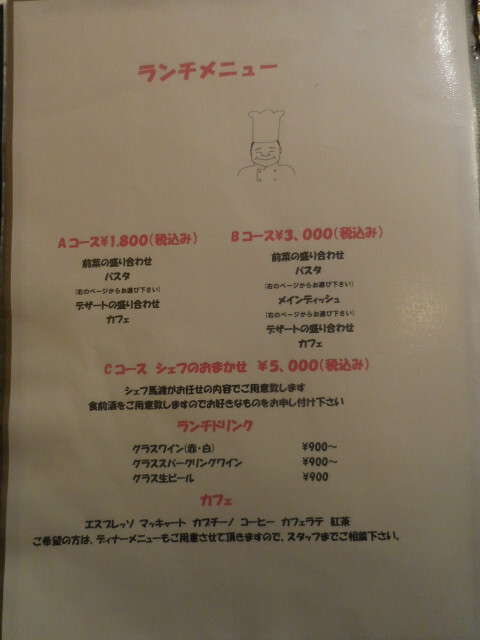 ランチメニュー
Aコース¥1,800(税込み)
前菜の盛り合わせ
パスタ
(右のページからお選び下さい)
デザートの盛り合わせ
カフェ
Bコース¥3、000(税込み)
前菜の盛り合わせ
パスタ
(右のページからお選び下さい)
メインディッシュ
(右のページからお選び下さい)
デザートの盛り合わせ
カフェ
Cコース シェフのおまかせ ¥5、000(税込み)
シェフ馬渡がお任せの内容でご用意致します
食前酒をご用意致しますのでお好きなものをお申し付け下さい
ランチドリンク
グラスワイン(赤・白) ¥900～
グラススパークリングワイン ¥900～
グラス生ビール ¥900
カフェ
エスプレッソ マッキャート カプチーノ コーヒー カフェラテ 紅茶
ご希望の方は、ディナーメニューもご用意させて頂きますので、スタッフまでご相談下さい。